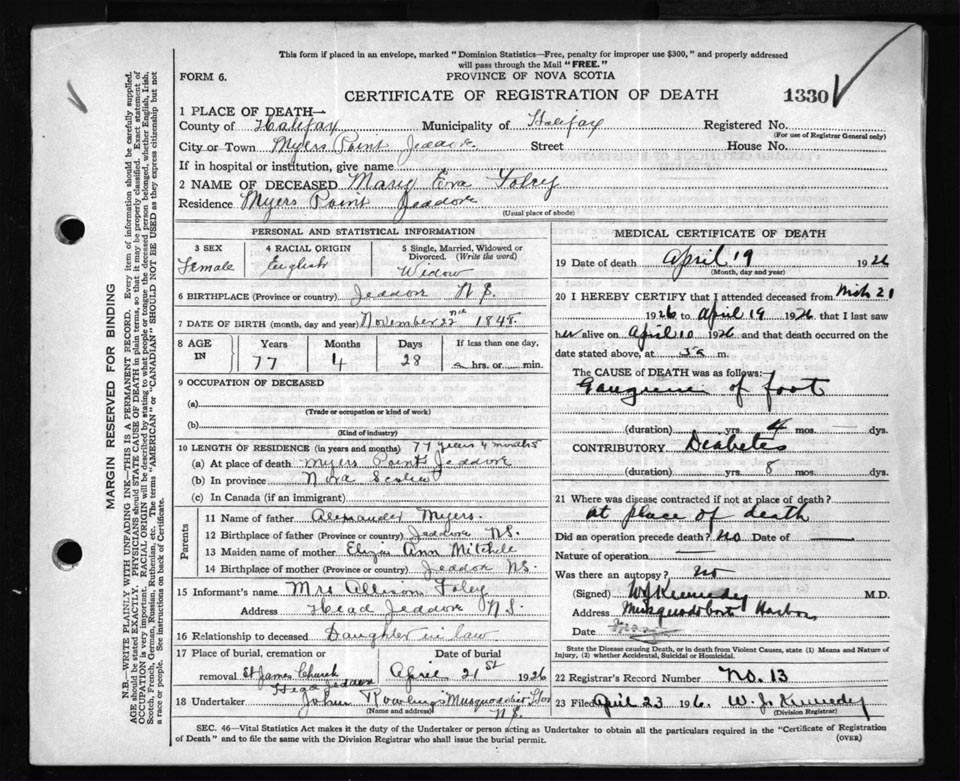 This form if placed in an envelope, marked "Dominion Statistics—Free, penalty for improper use $300," and properly addressed
will pass through the Mail "FREE."
FORM 6.
PROVINCE OF NOVA SCOTIA
CERTIFICATE OF REGISTRATION OF DEATH
1330
MARGIN RESERVED FOR BINDING
N.B.—WRITE PLAINLY WITH UNFADING INK—THIS IS A PERMANENT RECORD. Every item of information should be carefully supplied.
AGE should be stated EXACTLY. PHYSICIANS should STATE CAUSE OF DEATH in plain terms, so that it may be properly classified. Exact statement of
OCCUPATION is very important. RACIAL ORIGIN will be described by stating to what people or tongue the deceased person belonged, whether English, Irish,
Scotch, French, German, Russian, Ruthenian, etc. The terms "AMERICAN" or "CANADIAN" SHOULD NOT BE USED as they express citizenship but not
a race or people. See instructions on back of Certificate.
1 PLACE OF DEATH—
County of Halifax Municipality of Halifax Registered No.
(For use of Registrar General only)
City or Town Myers Point Street House No.
If in hospital or institution, give name
2 NAME OF DECEASED Mary Eva Foley
Residence Myers Point Jeddore
(Usual place of abode)
PERSONAL AND STATISTICAL INFORMATION
3 SEX
Female
4 RACIAL ORIGIN
English
5 Single, Married, Widowed or
Divorced. (Write the word)
Widow
6 BIRTHPLACE (Province or country) Jeddore N.S.
7 DATE OF BIRTH (month, day and year) November 22nd 1848.
8 AGE
IN
Years Months Days If less than one day,
77 4 28 hrs. or min.
9 OCCUPATION OF DECEASED
(a)
(Trade or occupation or kind of work)
(b)
(Kind of industry)
10 LENGTH OF RESIDENCE (in years and months) 77 years 4 months
(a) At place of death Myers Point Jeddore
(b) In province Nova Scotia
(c) In Canada (if an immigrant)
Parents
11 Name of father Alexander Myers.
12 Birthplace of father (Province or country) Jeddore NS.
13 Maiden name of mother Eliza Ann Mitchell
14 Birthplace of mother (Province or country) Jeddore NS.
15 Informant's name Mrs Allison Foley
Address Head Jeddore N.S.
16 Relationship to deceased Daughter in law
17 Place of burial, cremation or Date of burial
removal St James Church April 21st 1926
Head Jeddore
18 Undertaker John Rowlings Musquodoboit Hbr
(Name and address)
N.S.
MEDICAL CERTIFICATE OF DEATH
19 Date of death April 19 1926
(Month, day and year)
20 I HEREBY CERTIFY that I attended deceased from Mch 21
1926 to April 19 1926, that I last saw
her alive on April 10 1926, and that death occurred on the
date stated above, at m.
The CAUSE of DEATH was as follows:
Gangrene of foot
(duration) yrs. 4 mos. — dys.
CONTRIBUTORY Diabetes
(duration) yrs. 8 mos. dys.
21 Where was disease contracted if not at place of death?
At place of death
Did an operation precede death? No Date of —
Nature of operation —
Was there an autopsy? no
(Signed) W J Kennedy M.D.
Address Musquodoboit Harbor
Date
State the Disease causing Death, or in death from Violent Causes, state (1) Means and Nature of
Injury, (2) whether Accidental, Suicidal or Homicidal.
22 Registrar's Record Number No. 13
23 Filed April 23 1926. W. J. Kennedy
(Division Registrar)
SEC. 46—Vital Statistics Act makes it the duty of the Undertaker or person acting as Undertaker to obtain all the particulars required in the "Certificate of Registration
of Death" and to file the same with the Division Registrar who shall issue the burial permit.
(OVER)